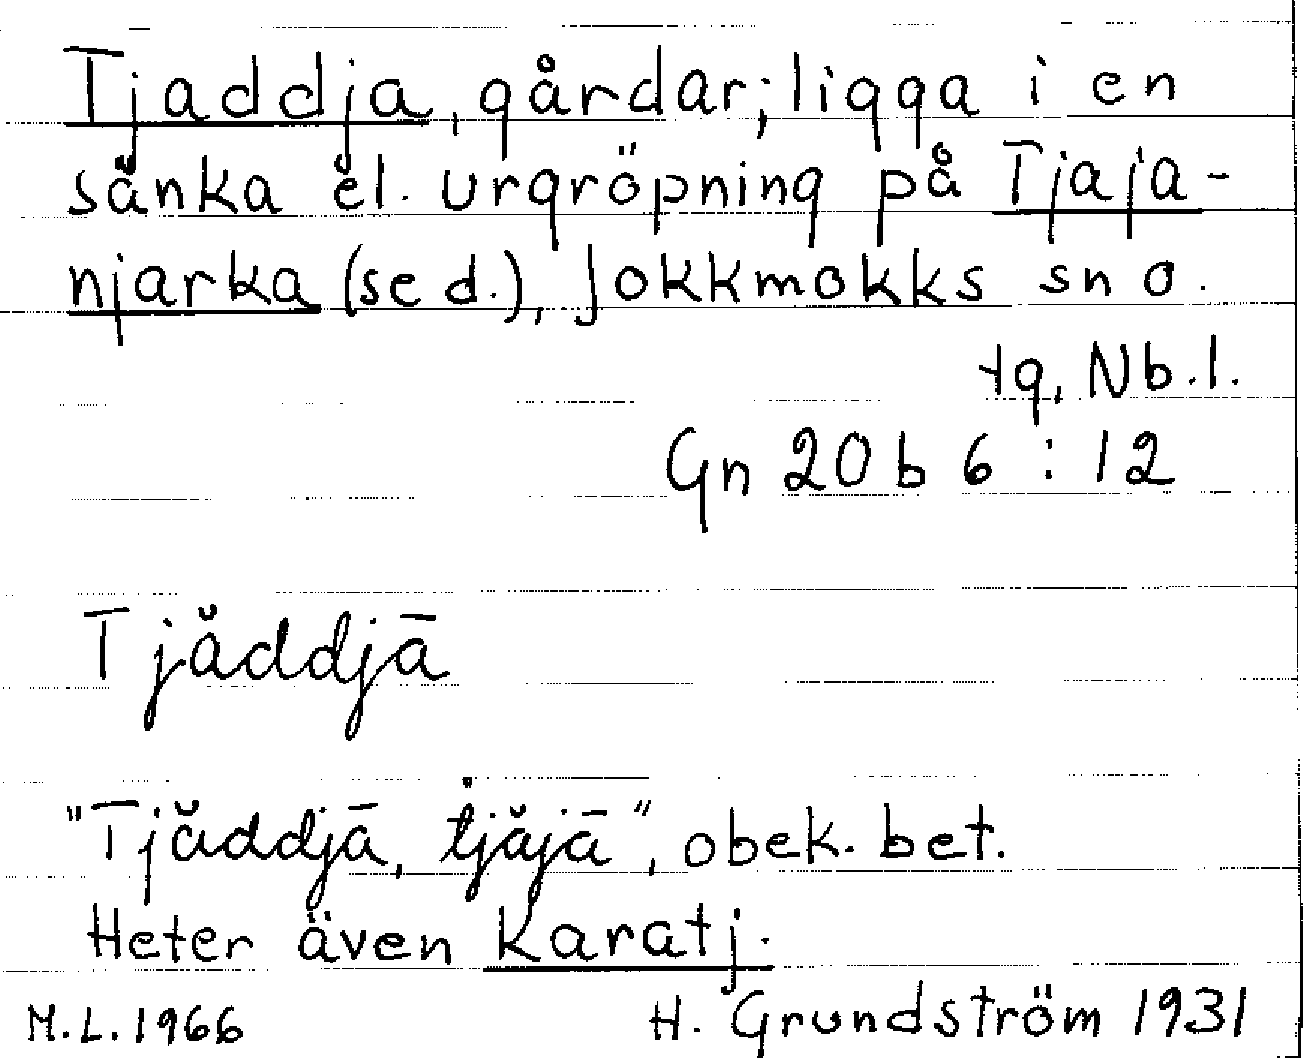 Tjaddja, gårdar; ligga i en
sänka el. urgröpning på Tjaja-
njarka (se d.), Jokkmokks sn o.
tg, Nb.l.
Gn 20 b 6 : 12
Tjăddjā
"Tjăddjā, tjăjā", obek. bet.
Heter även Karatj.
M.L. 1966 H. Grundström 1931